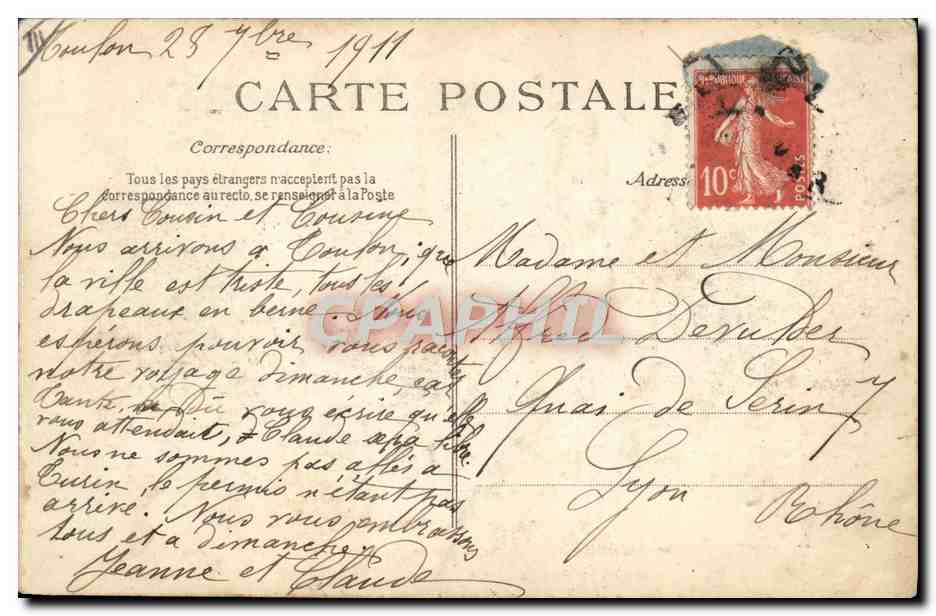 Toulon 28 7bre 1911
CARTE POSTALE
Correspondance:
Tous les pays étrangers n'acceptent pas la
correspondance au recto, se renseigner à la Poste
Chers Cousin et Cousine
Nous arrivons a Toulon, que
la ville est triste, tous les
drapeaux en berne. Nous
espérons pouvoir vous raconter
notre voyage dimanche, car
Tante a Dû vous écrire qu'elle
vous attendait, Claude sera libre.
Nous ne sommes pas allés a
Turin, le permis n'étant pas
arrivé. Nous vous embrassons
tous et a dimanche
Jeanne et Claude
Adresse
RÉPUBLIQUE FRANÇAISE
10c
POSTES
Madame et Monsieur
Alfred Devulder
Quai de Serin 7
Lyon
Rhône
CPAPHIL